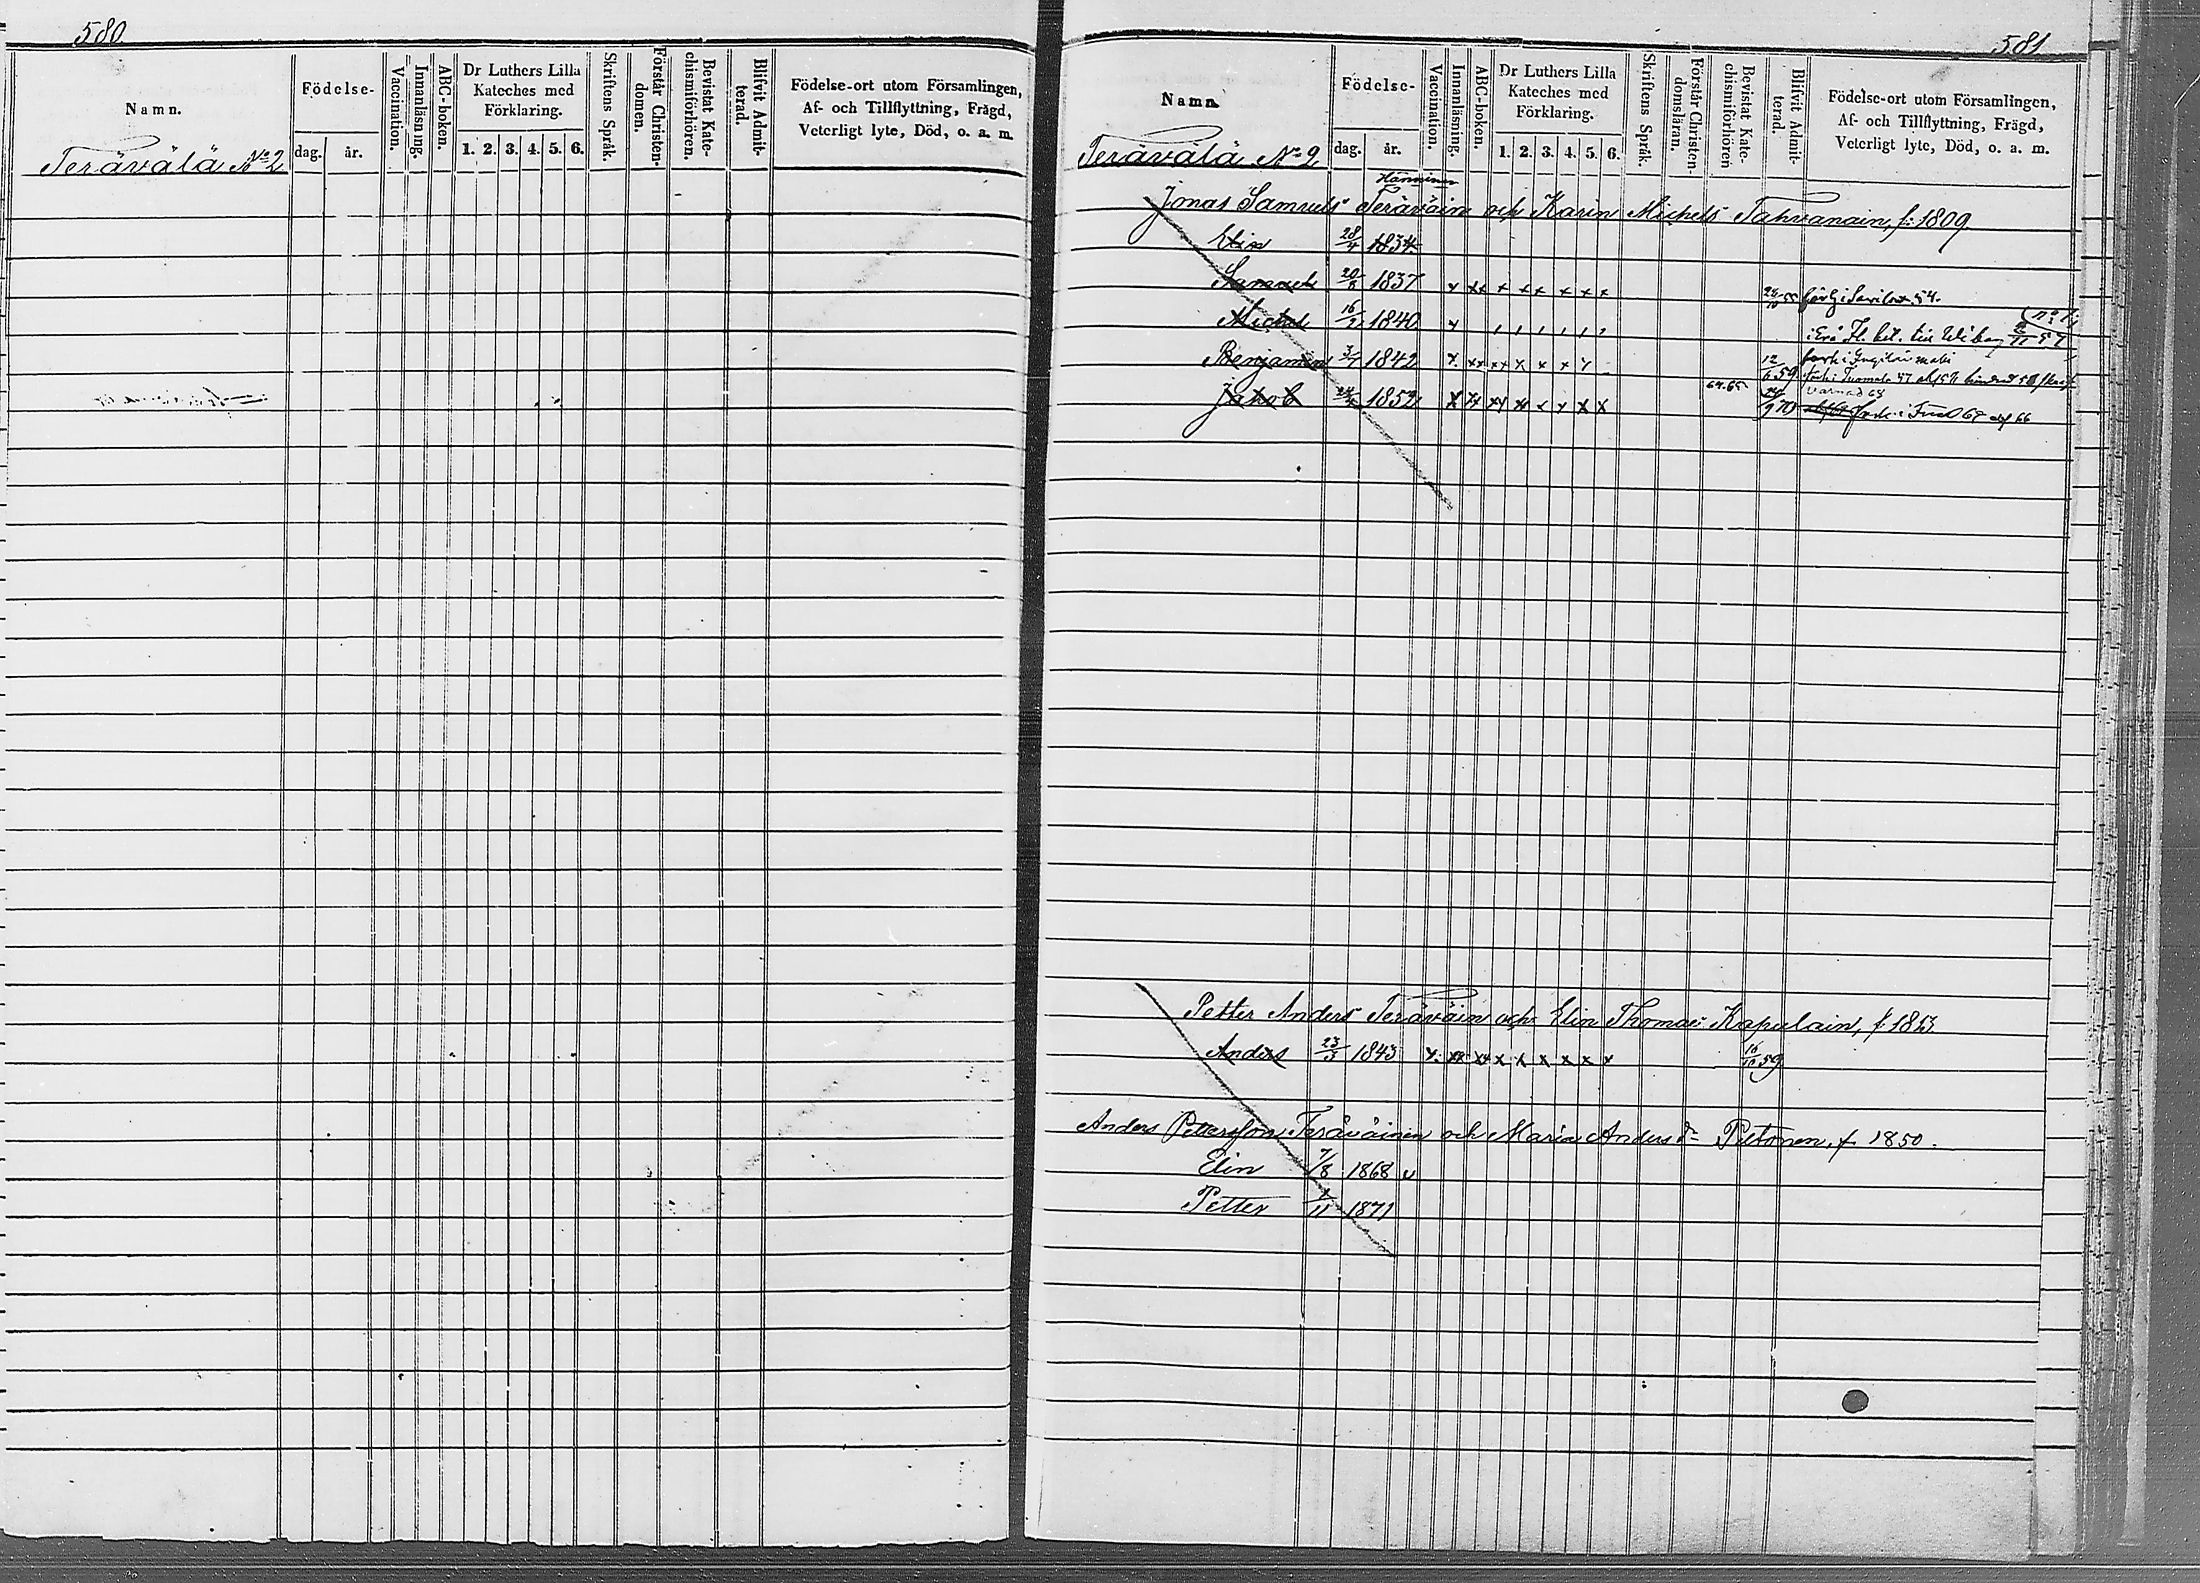 580
Namn.
Födelse-
dag. år.
Vaccination.
Innanläsning.
ABC-boken.
Dr Luthers Lilla
Kateches med
Förklaring.
1. 2. 3. 4. 5. 6.
Skriftens Språk.
Förstår Christen-
domen.
Bevistat Kate-
chismiförhören.
Blifvit Admit-
terad.
Födelse-ort utom Församlingen,
Af- och Tillflyttning, Frägd,
Veterligt lyte, Död, o. a. m.
Terävälä No 2
581
Namn
Födelse-
dag. år.
Vaccination.
Innanläsning.
ABC-boken.
Dr Luthers Lilla
Kateches med
Förklaring.
1. 2. 3. 4. 5. 6.
Skriftens Språk.
Förstår Christen-
domsläran.
Bevistat Kate-
chismiförhören
Blifvit Admit-
terad.
Födelse-ort utom Församlingen,
Af- och Tillflyttning, Frägd,
Veterligt lyte, Död, o. a. m.
Terävälä No 2
Hänninen
Jonas Samuels Teräväin och Karin Michels Tahvanain, f. 1809
Elin 28/4 1834
Samuel 20/8 1837 x xx x xx x x x
Michel 16/2 1840 x
Benjamin 3/7 1842 x xx xx x x x x 12/6 59
Jakob 1852 x xx xx x x x x x 64.65
Petter Anders Teräväin och Elin Thomas Kapulain, f. 1813
Anders 23/3 1843 x xx xx x x x x x x 16/10 59
Anders Pettersson Teräväinen och Maria Anders dr Piitonen, f. 1850.
Elin 7/8 1868 v
Petter 1/11 1871